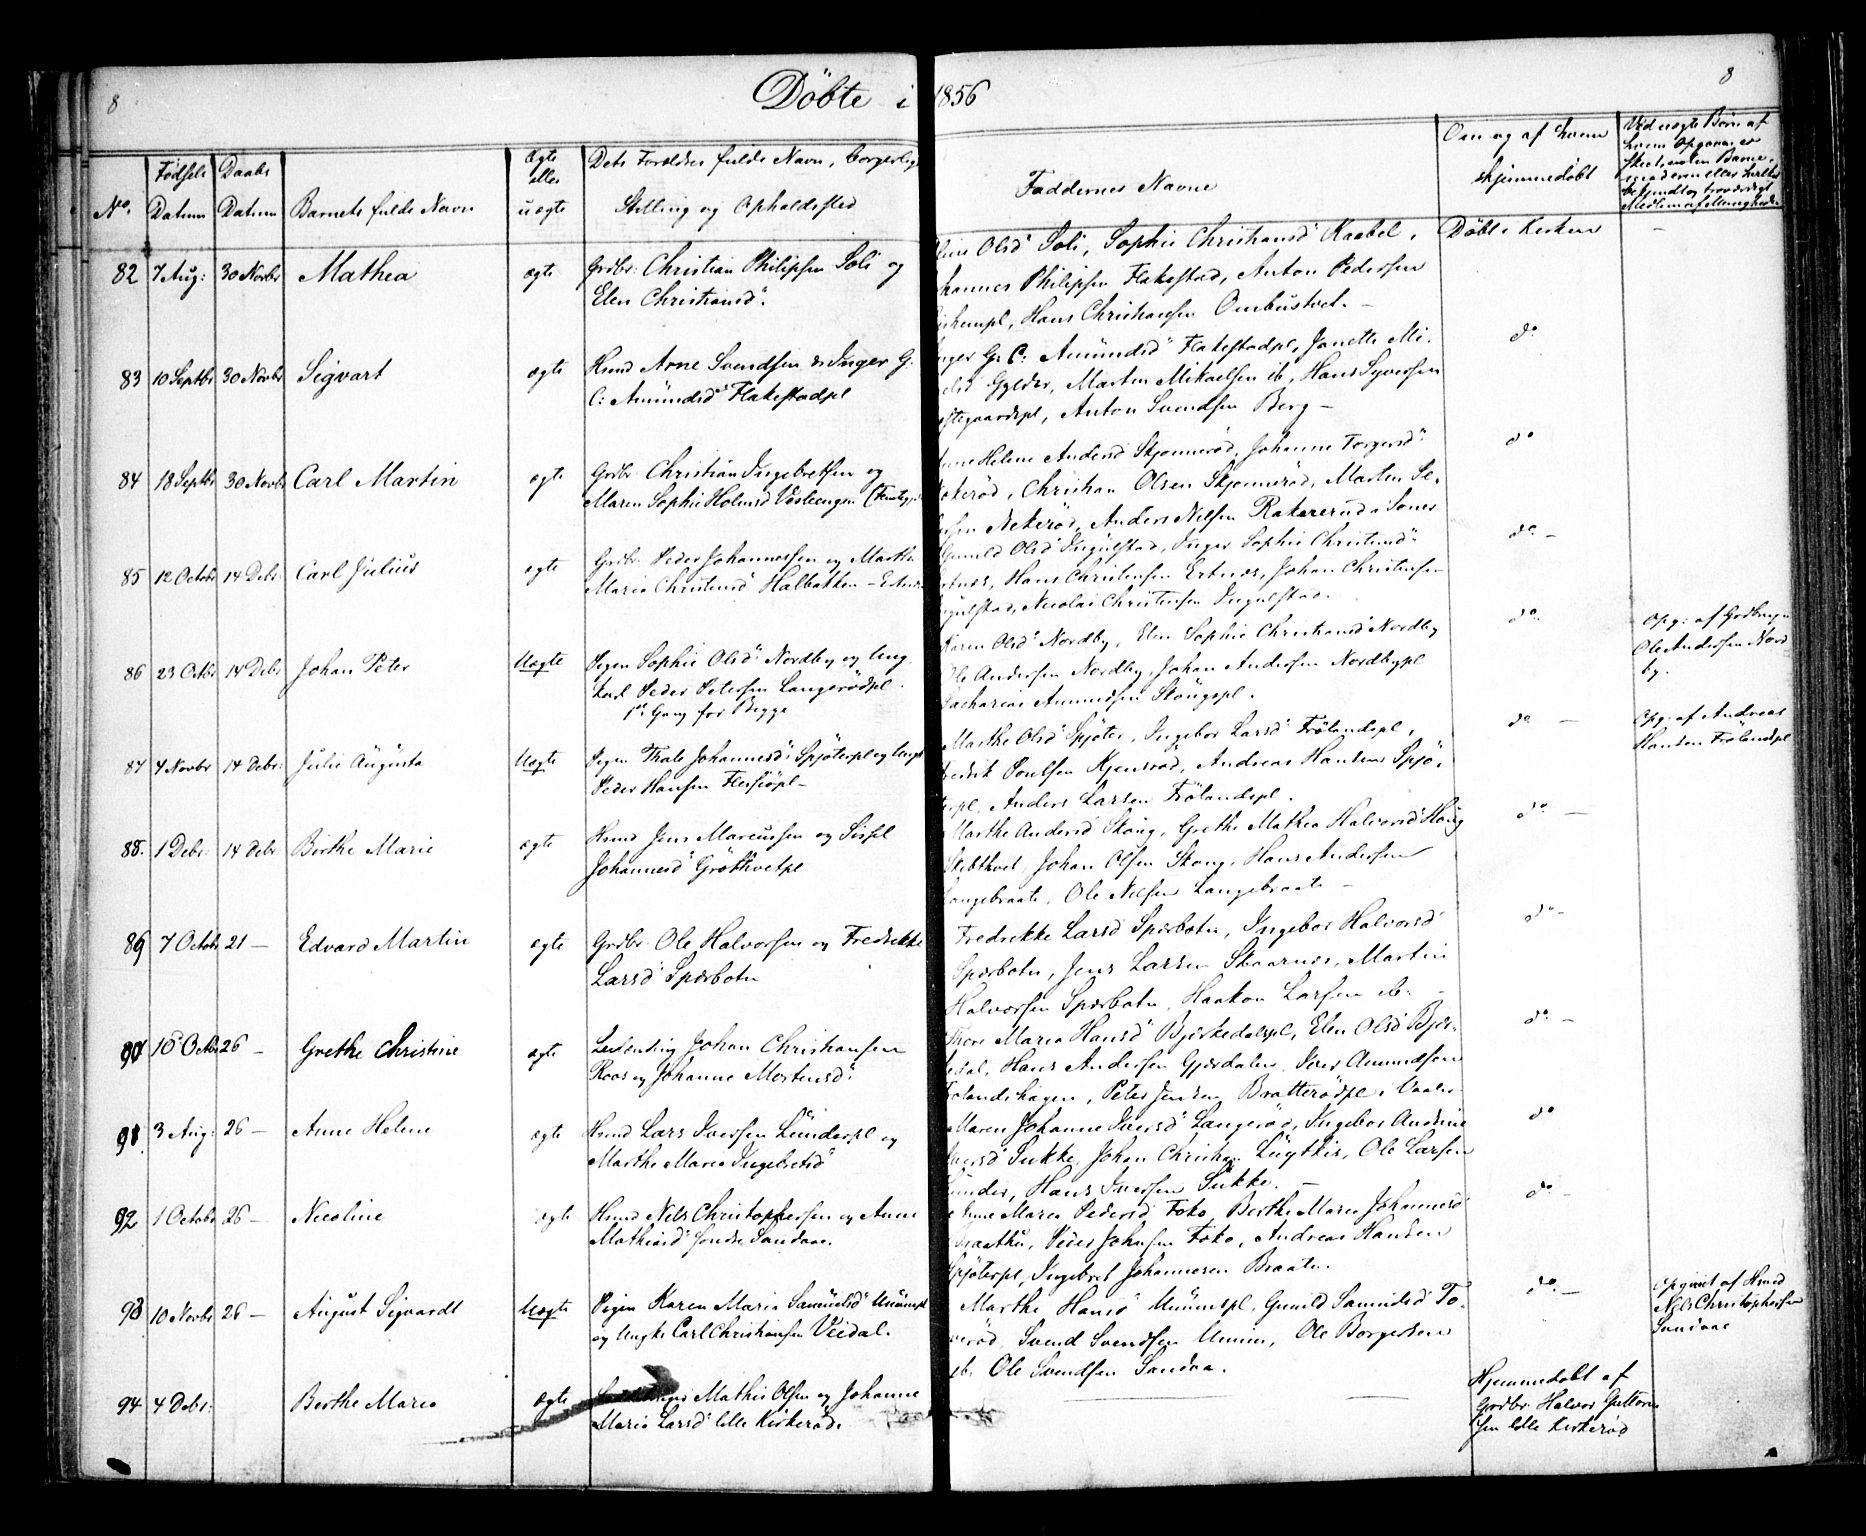 8
Döbte i 1856
8
No.
Födsels Datum
Daabs Datum
Barnets fulde Navn
Ægte eller uægte
Dets Forældres fulde Navn, borgerlig
Stilling og Opholdssted
Faddernes Navne
Om og af hvem
hjemmedöbt
Ved uægte Börn af
82 7 Aug: 30 Novbr Mathea ægte Grdbr: Christian Philipsen Soli og
Elen Christiansd.
Olsd Soli, Sophie Christiansd Kaabel,
Philipsen Flakestad, Anton Pedersen
Hans Christiansen Ombustvet. –
Döbt i Kirken –
83 10 Septbr 30 Novbr Sigvart ægte Hsmd Arne Svendsen & Inger G.
C: Amundsd Flakestadpl
G: C: Amundsd Flakestadpl, Janette Mi-
Gylder, Marten Mikaelsen ib, Hans Syversen
Anton Svendsen Berg –
do
84 18 Septbr 30 Novbr Carl Martin ægte Grdbr: Christian Ingebretsen og
Maren Sophie Holmsd Vesteengen
Helene Andersd Skjonneröd, Johanne Torgersd
Christian Olsen Skjonneröd, Marten Se-
Nekeröd, Anders Nilsen Rakererud i Soner
do
85 12 Octobr 14 Debr. Carl Julius ægte Grdbr. Peder Johannessen og Marthe
Marie Christensd Halbakken – Ertnes
Gunild Olsd Ingulstad, Inger Sophie Christensd
Hans Christensen Ertnes, Johan Christensen
Nicolai Christensen Ingulstad.
do –
86 23 Octbr 14 Debr Johan Peter Uægte Pigen Sophie Olsd Nordby og Ung
karl Peder Petersen Langerödpl.
1ste Gang for Begge
Karen Olsd Nordby, Elen Sophie Christiansd Nordby
Ole Andersen Nordby, Johan Andersen Nordbypl
Zacharias Amundsen Skougspl.
do
Opg: af Grdbruger
Ole Andersen Nord
by.
87 4 Novbr 14 Debr: Julie Augusta Uægte Pigen Thale Johannesd Spjöterpl og Ungk
Peder Hansen Flesjöpl –
Marthe Olsd Spjöter, Ingebor Larsd Frölandspl,
Fredrik Poulsen Kjensröd, Andreas Hansen Spjö-
terpl, Anders Larsen Frölandspl.
do –
Opg: af Andreas
Hansen Frölandspl
88. 1 Debr. 14 Debr Birthe Marie ægte Hsmd Jens Marcussen og Sissel
Johannesd Gröthvetpl
Marthe Andersd Skoug, Grethe Mathea Halvorsd Houg
Skibthvet, Johan Olsen Skoug, Hans Andersen
Langebraate, Ole Nilsen Langebraate –
do –
89 7 Octobr 21 – Edvard Martin ægte Grdbr. Ole Halvorsen og Fredrikke
Larsd Sperboten
Fredrikke Larsd Sperboten, Ingebor Halvorsd
Sperboten, Jens Larsen Skaarnes, Martin
Halvorsen Sperboten, Haakon Larsen ib. –
do –
90 Octbr 26 – Grethe Christine ægte Leilænding Johan Christiansen
Roos og Johanne Mortensd.
Thore Maria Hansd Bjirkedalspl, Elen Olsd Bjir-
kedal, Hans Andersen Gjersdalen, Iver Amundsen
Frolandshagen, Peter Jensen Bratterödpl i Vaaler
do –
91 3 Aug: 26 – Anne Helene ægte Hsmd Lars Iversen Lunderpl og
Marthe Maria Ingebretsd
Maren Johanne Iversd Langeröd, Ingebor Andrine
Iversd Sukke, Johan Christian Ole Larsen
Lunder, Hans Iversen Sukke. –
do
92 1 Octobr 26 – Nicoline ægte Hsmd Nils Christophersen og Anne
Mathisd söndre Sandaae.
Anne Maria Pedersd Foko, Berthe Marie Johannesd
Braathe, Peder Johnsen Foko, Andreas Hansen
Spjöterpl, Ingebret Johannesen Braaten.
do –
93 10 Novbr 26 – August Sigvardt Uægte Pigen Karen Maria Samuelsd
og Ungk: Carl Christiansen Veidal.
Marthe Hansd Gunild To-
veröd, Svend Svendsen Ole Borgersen
ib. Ole Svendsen Sandaa.
do –
Opgivet af Hsmd
Nils Christophersen
Sandaae
94 4 Debr: Berthe Maria Ægte Mathis Olsen og Johanne
Maria Larsd lille Kirkeröd.
Hjemmedöbt af
Grdbr: Halvor Guttorm
sen lille Kirkeröd